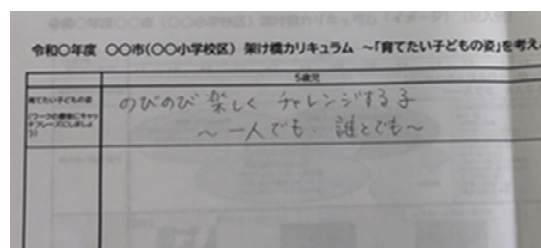 令和〇年度 〇〇市(〇〇小学校区) 架け橋カリキュラム ～「育てたい子どもの姿」を考え
5歳児
育てたい子どもの姿
(ワークの最後にキャッ
チフレーズにしましょ
う)
のびのび 楽しく チャレンジする子
～一人でも 誰とでも～